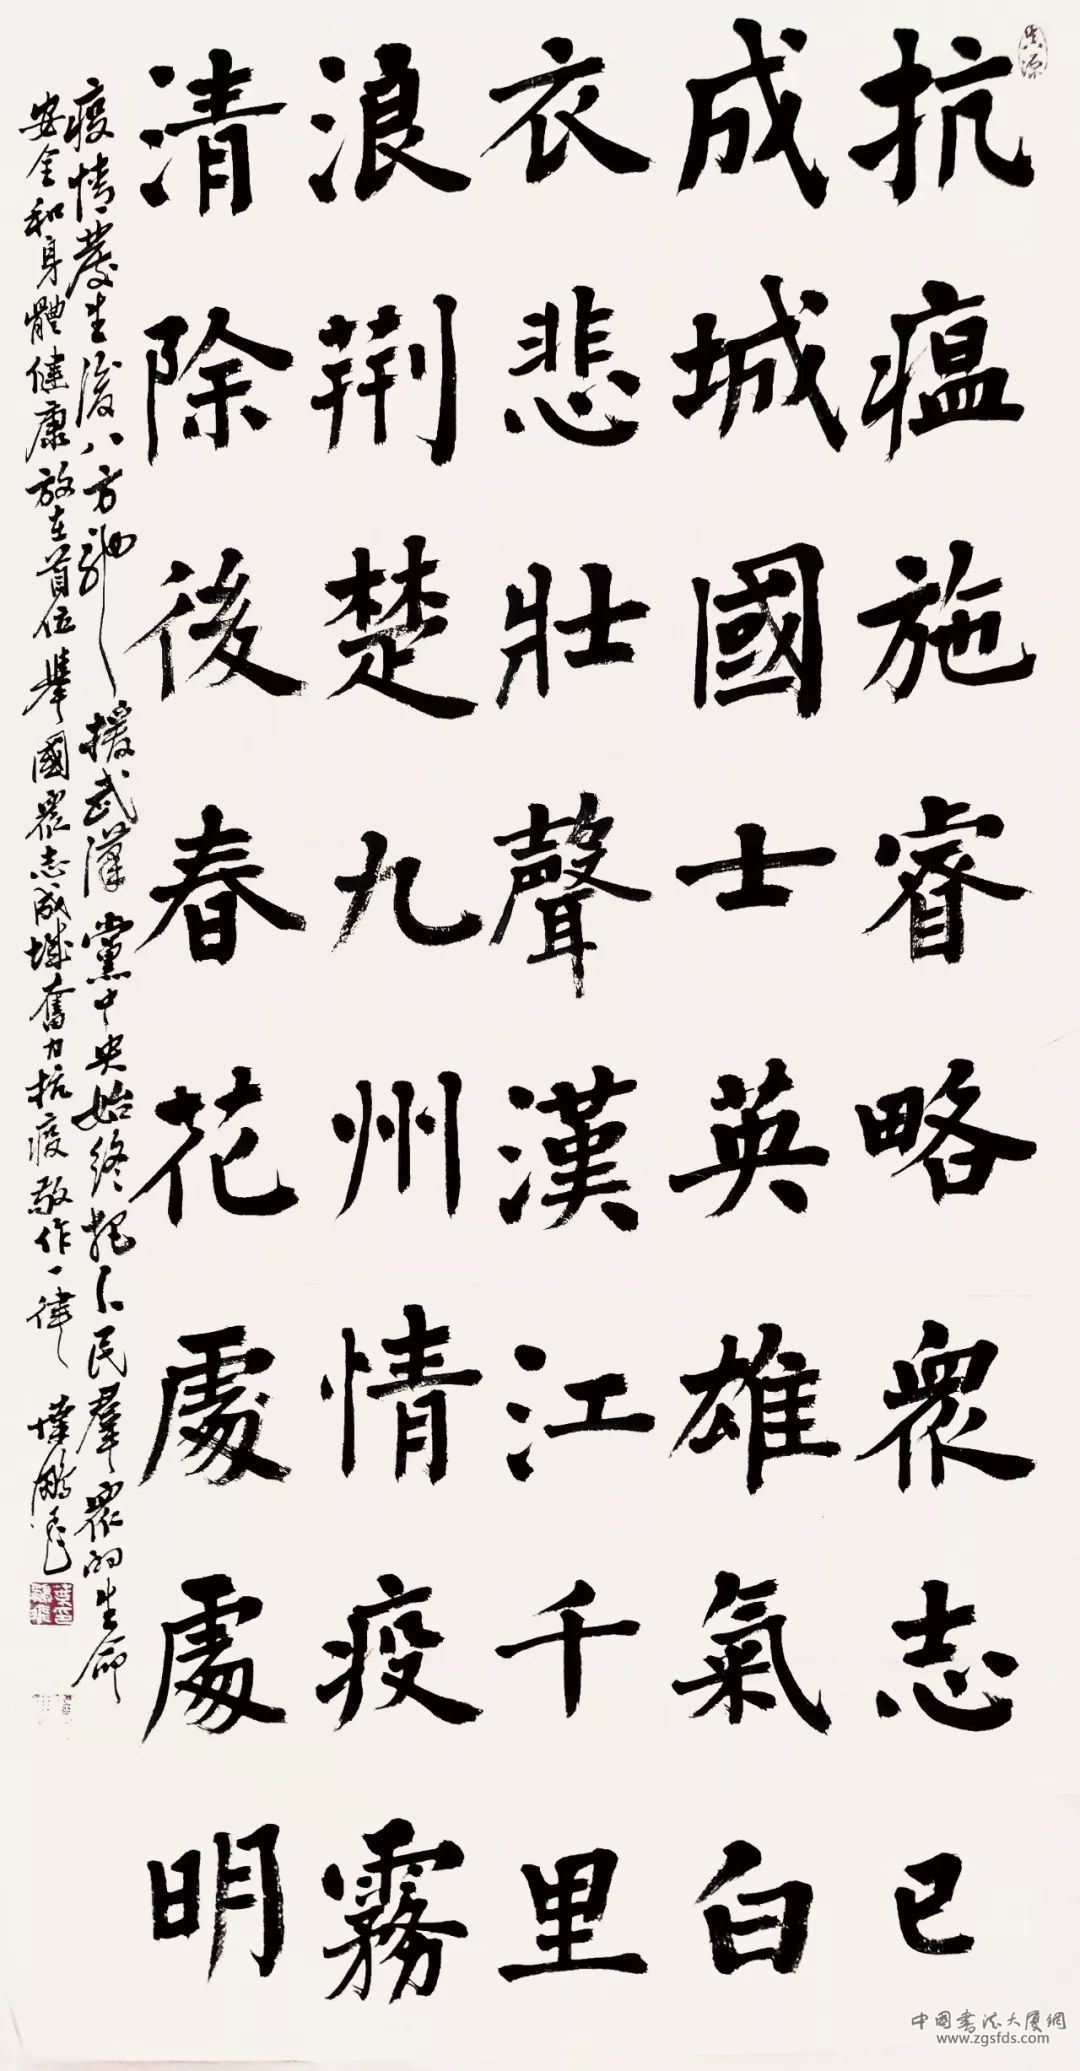 抗瘟施睿略衆志已
成城國士英雄氣白
衣悲壯聲漢江千里
浪荊楚九州情疫霧
清除後春花處處明
疫情發生後八方馳援武漢黨中央始終把人民群衆的生命
安全和身體健康放在首位舉國衆志成城奮力抗疫敬作一律
中国书法大厦網
www.zgsfds.com